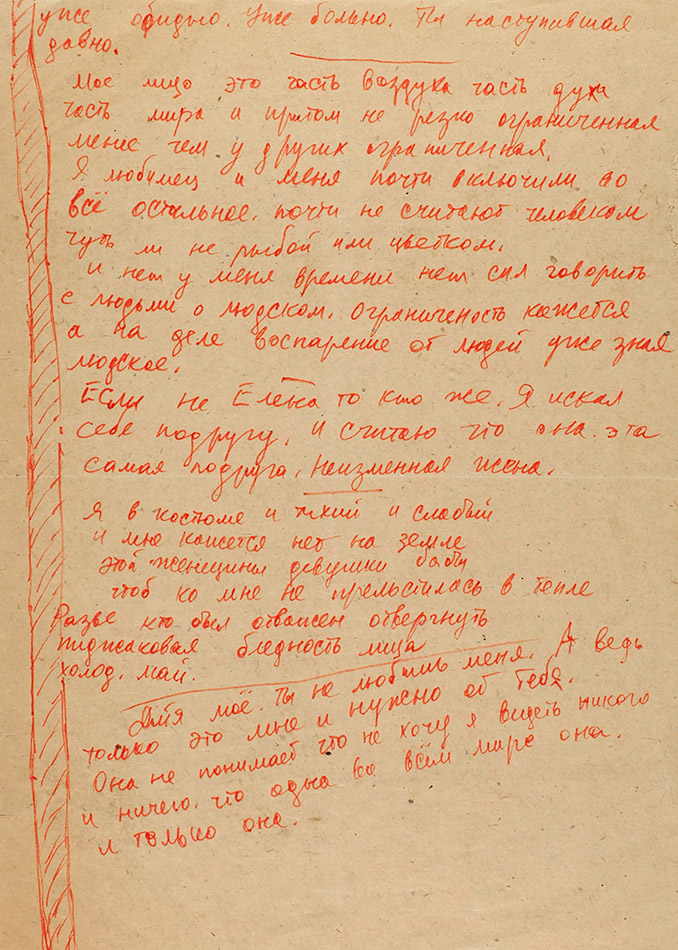 уже обидно. Уже больно. Ты наступившая
давно.
Мое лицо это часть воздуха часть духа
часть мира и притом не резко ограниченная
менее чем у других ограниченная.
Я любимец и меня почти включили во
всё остальное, почти не считают человеком
чуть ли не рыбой или цветком.
и нет у меня времени нет сил говорить
с людьми о людском. Ограниченость кажется
а на деле воспарение от людей уже зная
людское.
Если не Елена то кто же. Я искал
себе подругу, и считаю что она эта
самая подруга, неизменная жена.
Я в костюме и тихий и слабый
и мне кажется нет на земле
этой женщины девушки бабы
чтоб ко мне не прельстилась в тепле
Разве кто был отважен отвергнуть
пиджаковая бледность лица
холод. май.
Дитя моё. Ты не любишь меня. А ведь
только это мне и нужно от тебя.
Она не понимает что не хочу я видеть никого
и ничего, что одна во всём мире она.
и только она.